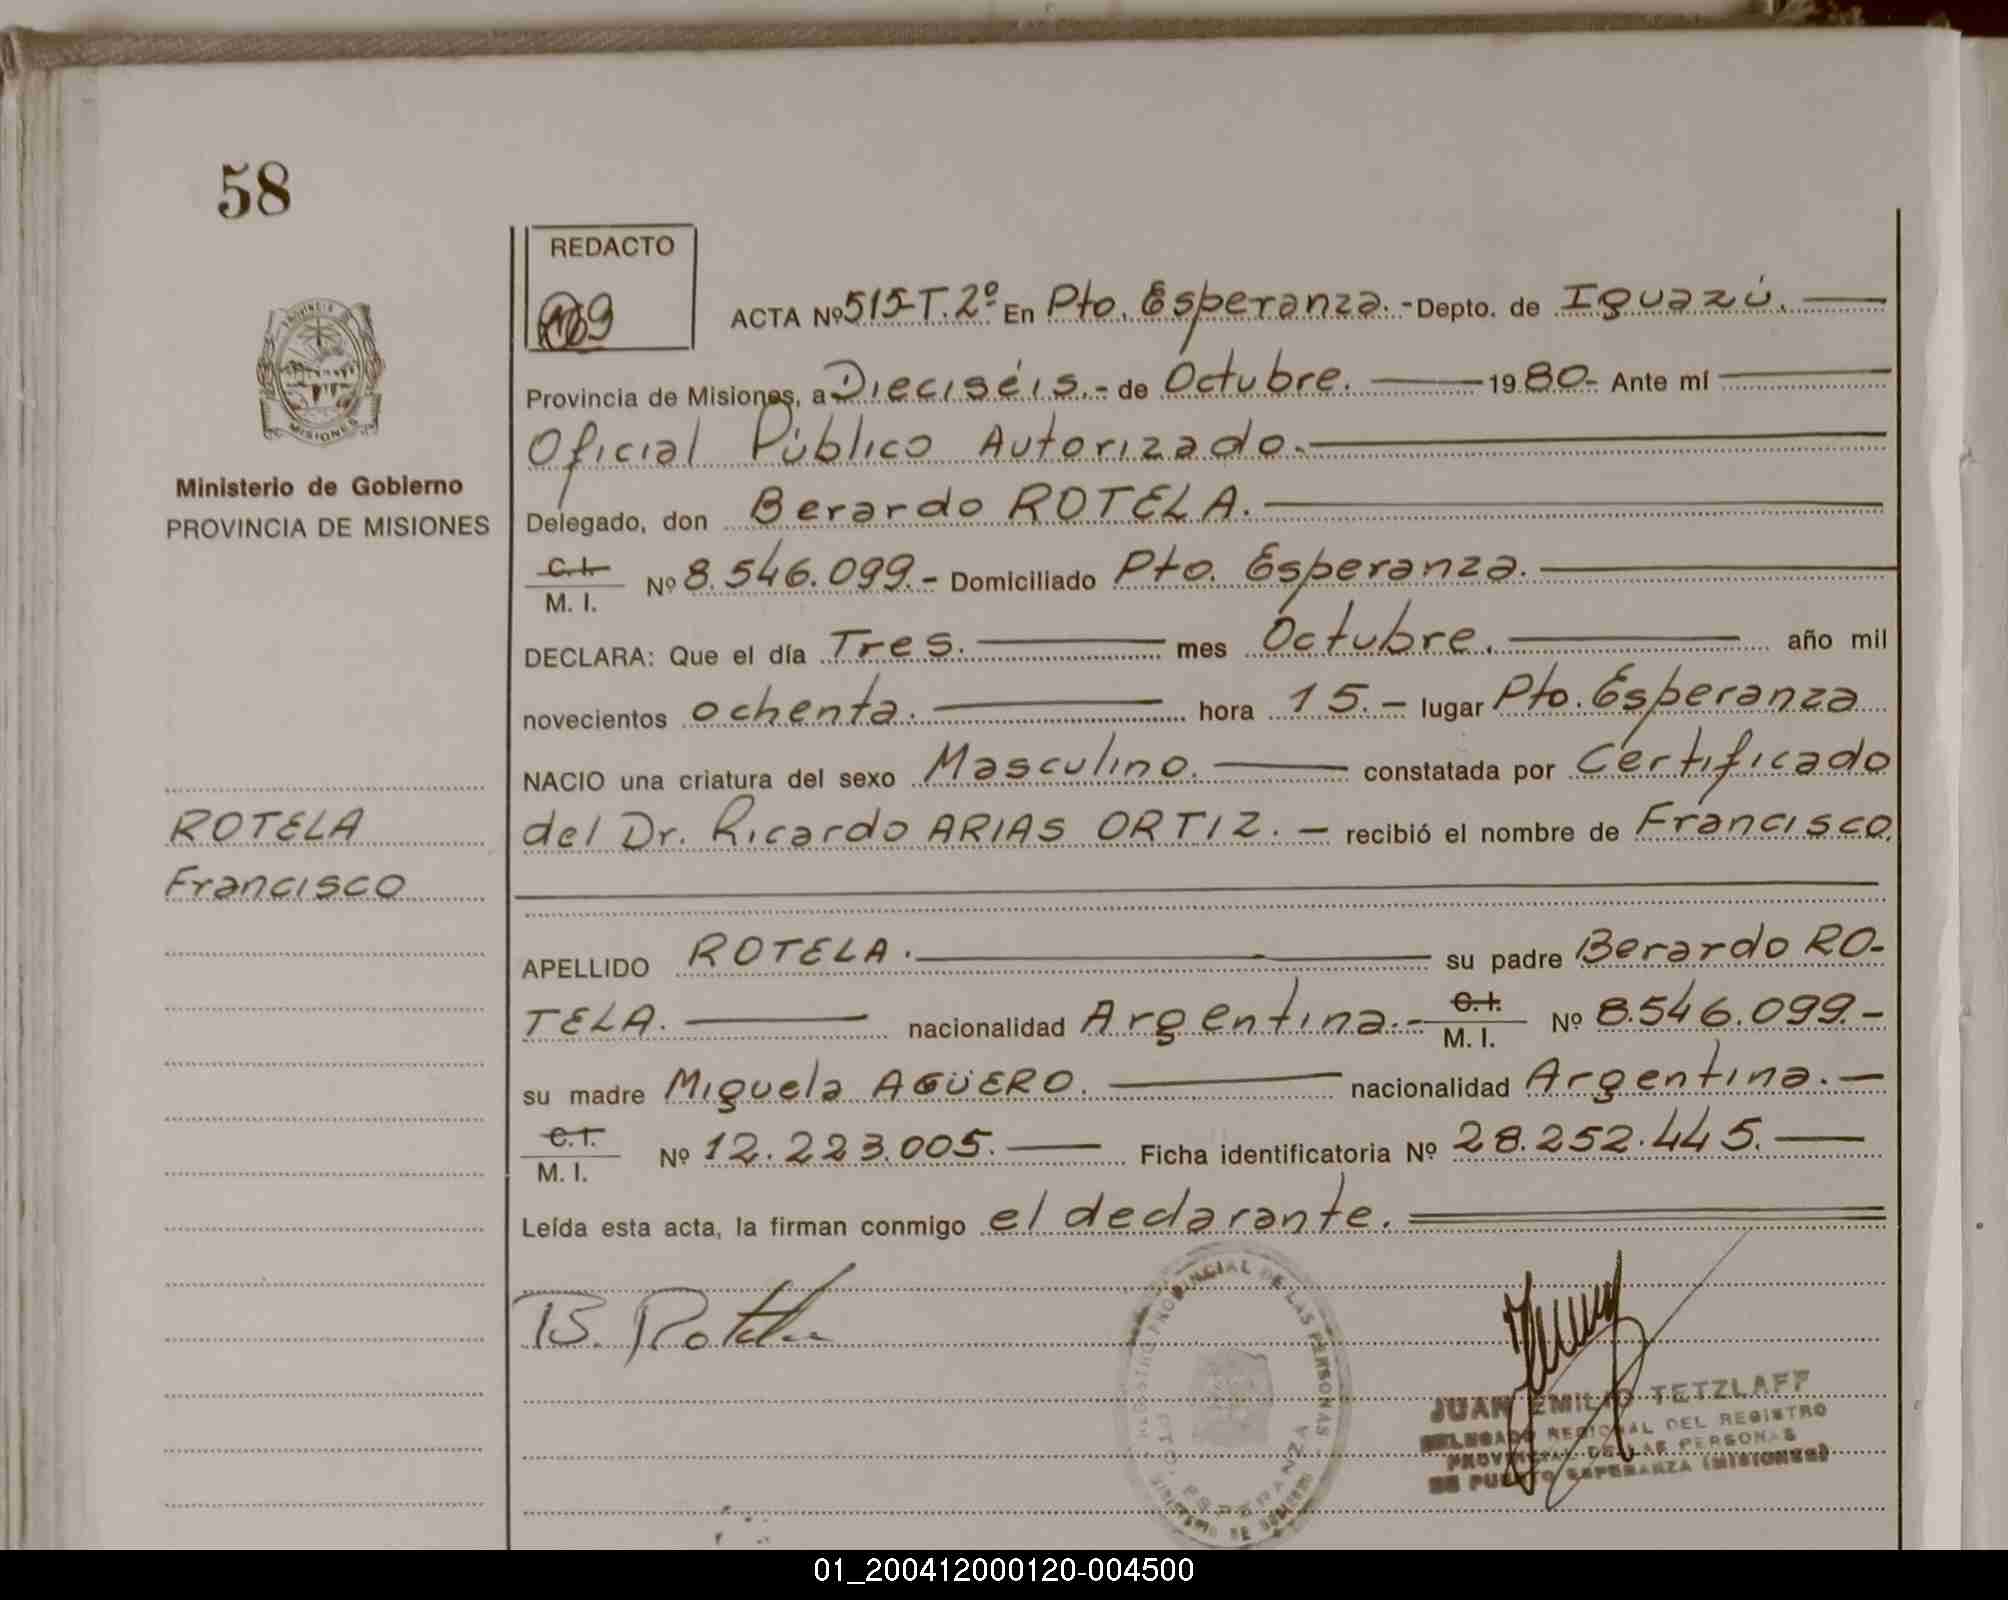 58
REDACTO
ACTA Nº 515-T.2º En Pto. Esperanza.- Depto. de Iguazú.
Provincia de Misiones, a Dieciséis.- de Octubre. 1980.- Ante mí
Oficial Público Autorizado.
Delegado, don Berardo ROTELA.
PROVINCIA
MISIONES
Ministerio de Gobierno
PROVINCIA DE MISIONES
C. I.
M. I. Nº 8.546.099.- Domiciliado Pto. Esperanza.
DECLARA: Que el día Tres. mes Octubre. año mil
novecientos ochenta. hora 15.- lugar Pto. Esperanza
NACIO una criatura del sexo Masculino. constatada por Certificado
del Dr. Ricardo ARIAS ORTIZ.- recibió el nombre de Francisco.
ROTELA
Francisco
APELLIDO ROTELA. su padre Berardo RO-
TELA. nacionalidad Argentina.- C. I. M. I. Nº 8.546.099.-
su madre Miguela AGÜERO. nacionalidad Argentina.-
C. I.
M. I. Nº 12.223.005. Ficha identificatoria Nº 28.252.445.
Leída esta acta, la firman conmigo el declarante.
B. Rotela
REGISTRO PROVINCIAL DE LAS PERSONAS
PTO. ESPERANZA
MINISTERIO DE GOBIERNO
JUAN EMILIO TETZLAFF
DELEGADO REGIONAL DEL REGISTRO
PROVINCIAL DE LAS PERSONAS
DE PUERTO ESPERANZA (MISIONES)
01_200412000120-004500